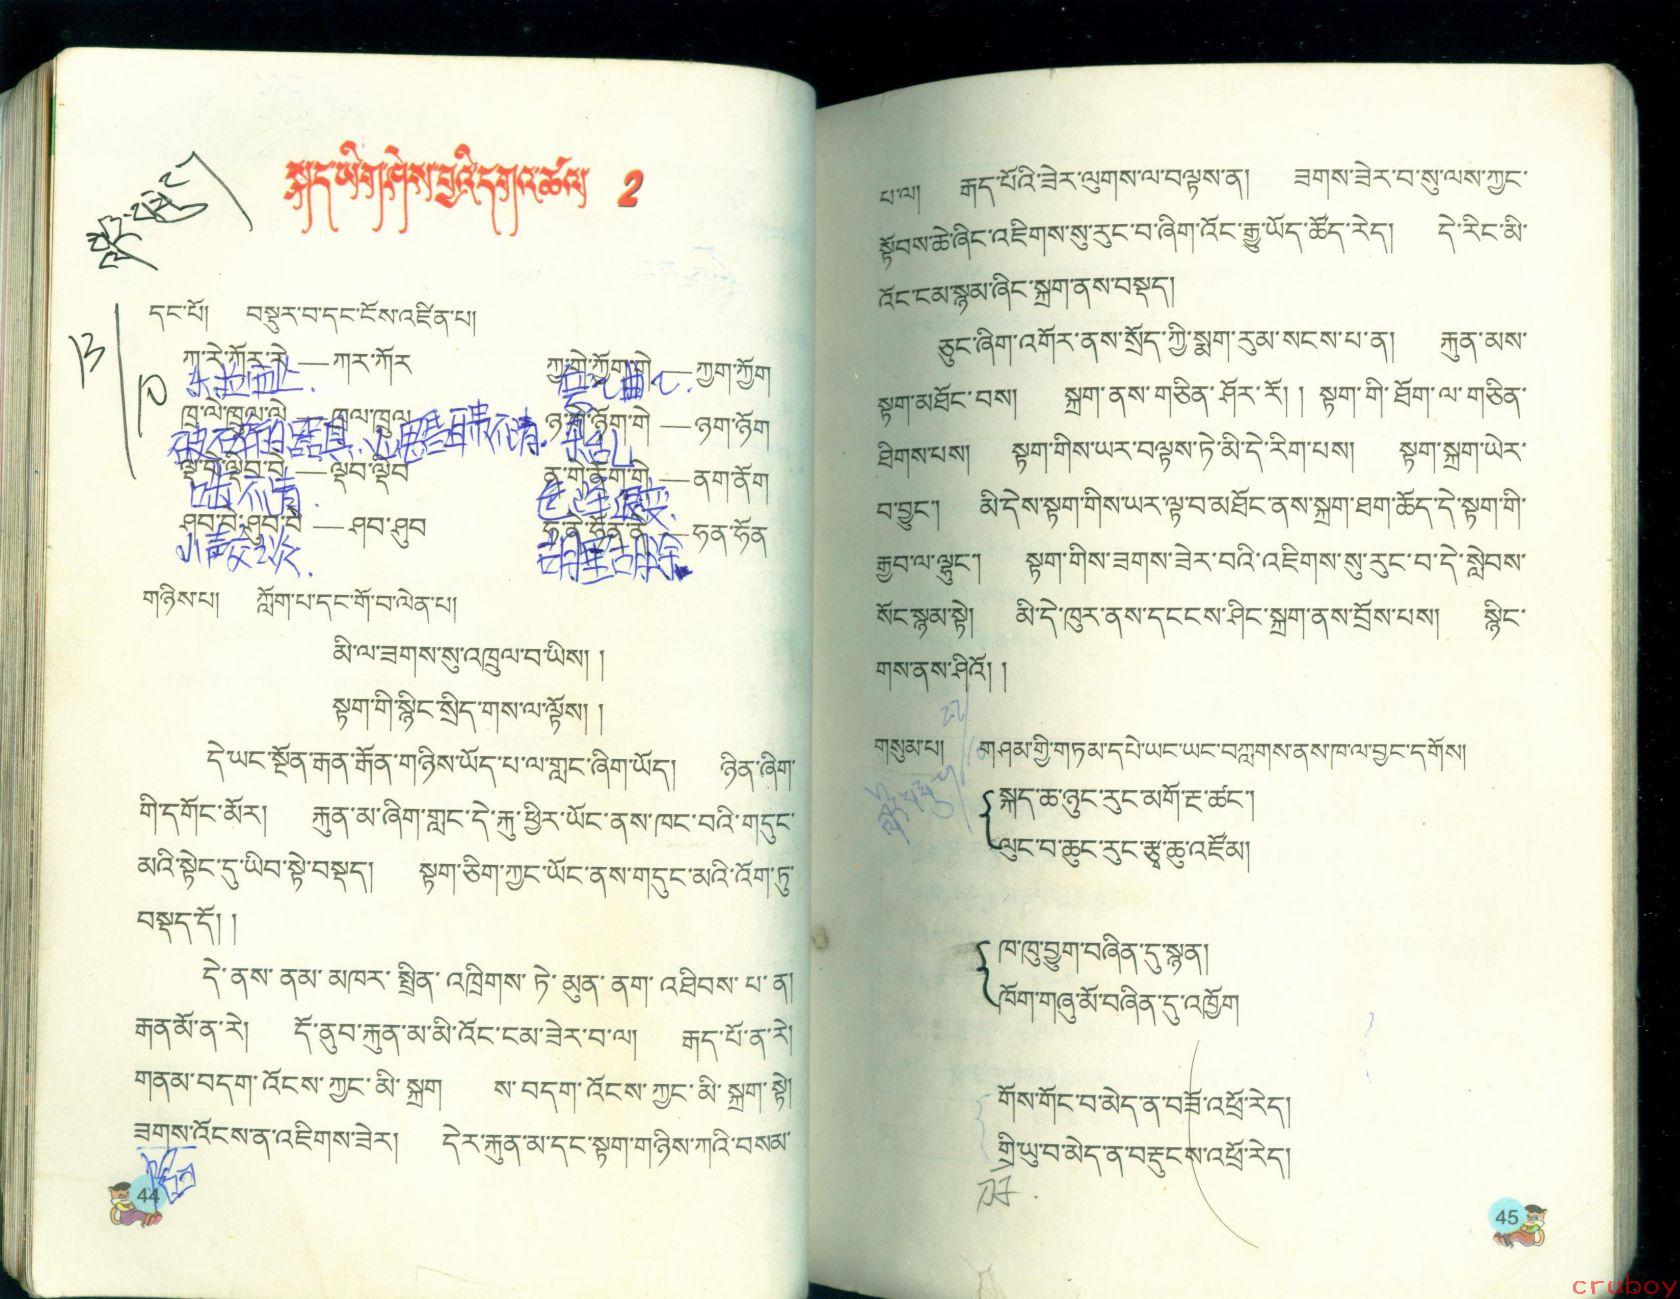 སྐད་ཡིག་ཤེས་བྱའི་དགའ་ཚལ 2
དང་པོ། བསྡུར་བ་དང་ངོས་འཛིན་པ།
ཀ་རེ་ཀོར་རེ — ཀར་ཀོར
ཀྱ་གེ་ཀྱོག་གེ — ཀྱག་ཀྱོག
ཁྲ་ལེ་ཁྲུལ་ལེ — ཁྲལ་ཁྲུལ
ཉ་གེ་ཉོག་གེ — ཉག་ཉོག
ལྡ་བེ་ལྡིབ་བེ — ལྡབ་ལྡིབ
ན་གེ་ནོག་གེ — ནག་ནོག
ཤབ་བེ་ཤུབ་བེ — ཤབ་ཤུབ
ཧ་ནེ་ཧོན་ནེ — ཧན་ཧོན
གཉིས་པ། ཀློག་པ་དང་གོ་བ་ལེན་པ།
མི་ལ་ཟགས་སུ་འཁྲུལ་བ་ཡིས། །
སྟག་གི་སྙིང་སྲིད་གས་ལ་ལྟོས། །
དེ་ཡང་སྔོན་རྒན་རྒོན་གཉིས་ཡོད་པ་ལ་གླང་ཞིག་ཡོད། ཉིན་ཞིག་
གི་དགོང་མོར། རྐུན་མ་ཞིག་གླང་དེ་རྐུ་ཕྱིར་ཡོང་ནས་ཁང་བའི་གདུང་
མའི་སྟེང་དུ་ཡིབ་སྟེ་བསྡད། སྟག་ཅིག་ཀྱང་ཡོང་ནས་གདུང་མའི་འོག་ཏུ་
བསྡད་དོ། །
དེ་ནས་ནམ་མཁར་སྤྲིན་འཁྲིགས་ཏེ་མུན་ནག་འཐིབས་པ་ན།
རྒན་མོ་ན་རེ། དོ་ནུབ་རྐུན་མ་མི་འོང་ངམ་ཟེར་བ་ལ། རྒད་པོ་ན་རེ།
གནམ་བདག་འོངས་ཀྱང་མི་སྐྲག ས་བདག་འོངས་ཀྱང་མི་སྐྲག་སྟེ།
ཟགས་འོངས་ན་འཇིགས་ཟེར། དེར་རྐུན་མ་དང་སྟག་གཉིས་ཀའི་བསམ་
44
པ་ལ། རྒད་པོའི་ཟེར་ལུགས་ལ་བལྟས་ན། ཟགས་ཟེར་བ་སུ་ལས་ཀྱང་
སྟོབས་ཆེ་ཞིང་འཇིགས་སུ་རུང་བ་ཞིག་འོང་རྒྱུ་ཡོད་ཚོད་རེད། དེ་རིང་མི་
འོང་ངམ་སྙམ་ཞིང་སྐྲག་ནས་བསྡད།
ཅུང་ཞིག་འགོར་ནས་སྲོད་ཀྱི་སྨག་རུམ་སངས་པ་ན། རྐུན་མས་
སྟག་མཐོང་བས། སྐྲག་ནས་གཅིན་ཤོར་རོ། །སྟག་གི་ཐོག་ལ་གཅིན་
ཐིགས་པས། སྟག་གིས་ཡར་བལྟས་ཏེ་མི་དེ་རིག་པས། སྟག་སྐྲག་ཡེར་
བ་བྱུང་། མི་དེས་སྟག་གིས་ཡར་ལྟ་བ་མཐོང་ནས་སྐྲག་ཐག་ཆོད་དེ་སྟག་གི་
རྒྱབ་ལ་ལྷུང་། སྟག་གིས་ཟགས་ཟེར་བའི་འཇིགས་སུ་རུང་བ་དེ་སླེབས་
སོང་སྙམ་སྟེ། མི་དེ་ཁུར་ནས་དངངས་ཤིང་སྐྲག་ནས་བྲོས་པས། སྙིང་
གས་ནས་ཤིའོ། །
གསུམ་པ། གཤམ་གྱི་གཏམ་དཔེ་ཡང་ཡང་བཀླགས་ནས་ཁ་ལ་བྱང་དགོས།
སྐད་ཆ་ཉུང་རུང་མགོ་རྔ་ཚང་།
ལུང་བ་ཆུང་རུང་རྩྭ་ཆུ་འཛོམ།
ཁ་ཁུ་བྱུག་བཞིན་དུ་སྙན།
ཁོག་གཞུ་མོ་བཞིན་དུ་འཁྱོག
གོས་གོང་བ་མེད་ན་བཟོ་འཕྲོ་རེད།
གྲི་ཡུ་བ་མེད་ན་བརྡུངས་འཕྲོ་རེད།
45
cruboy